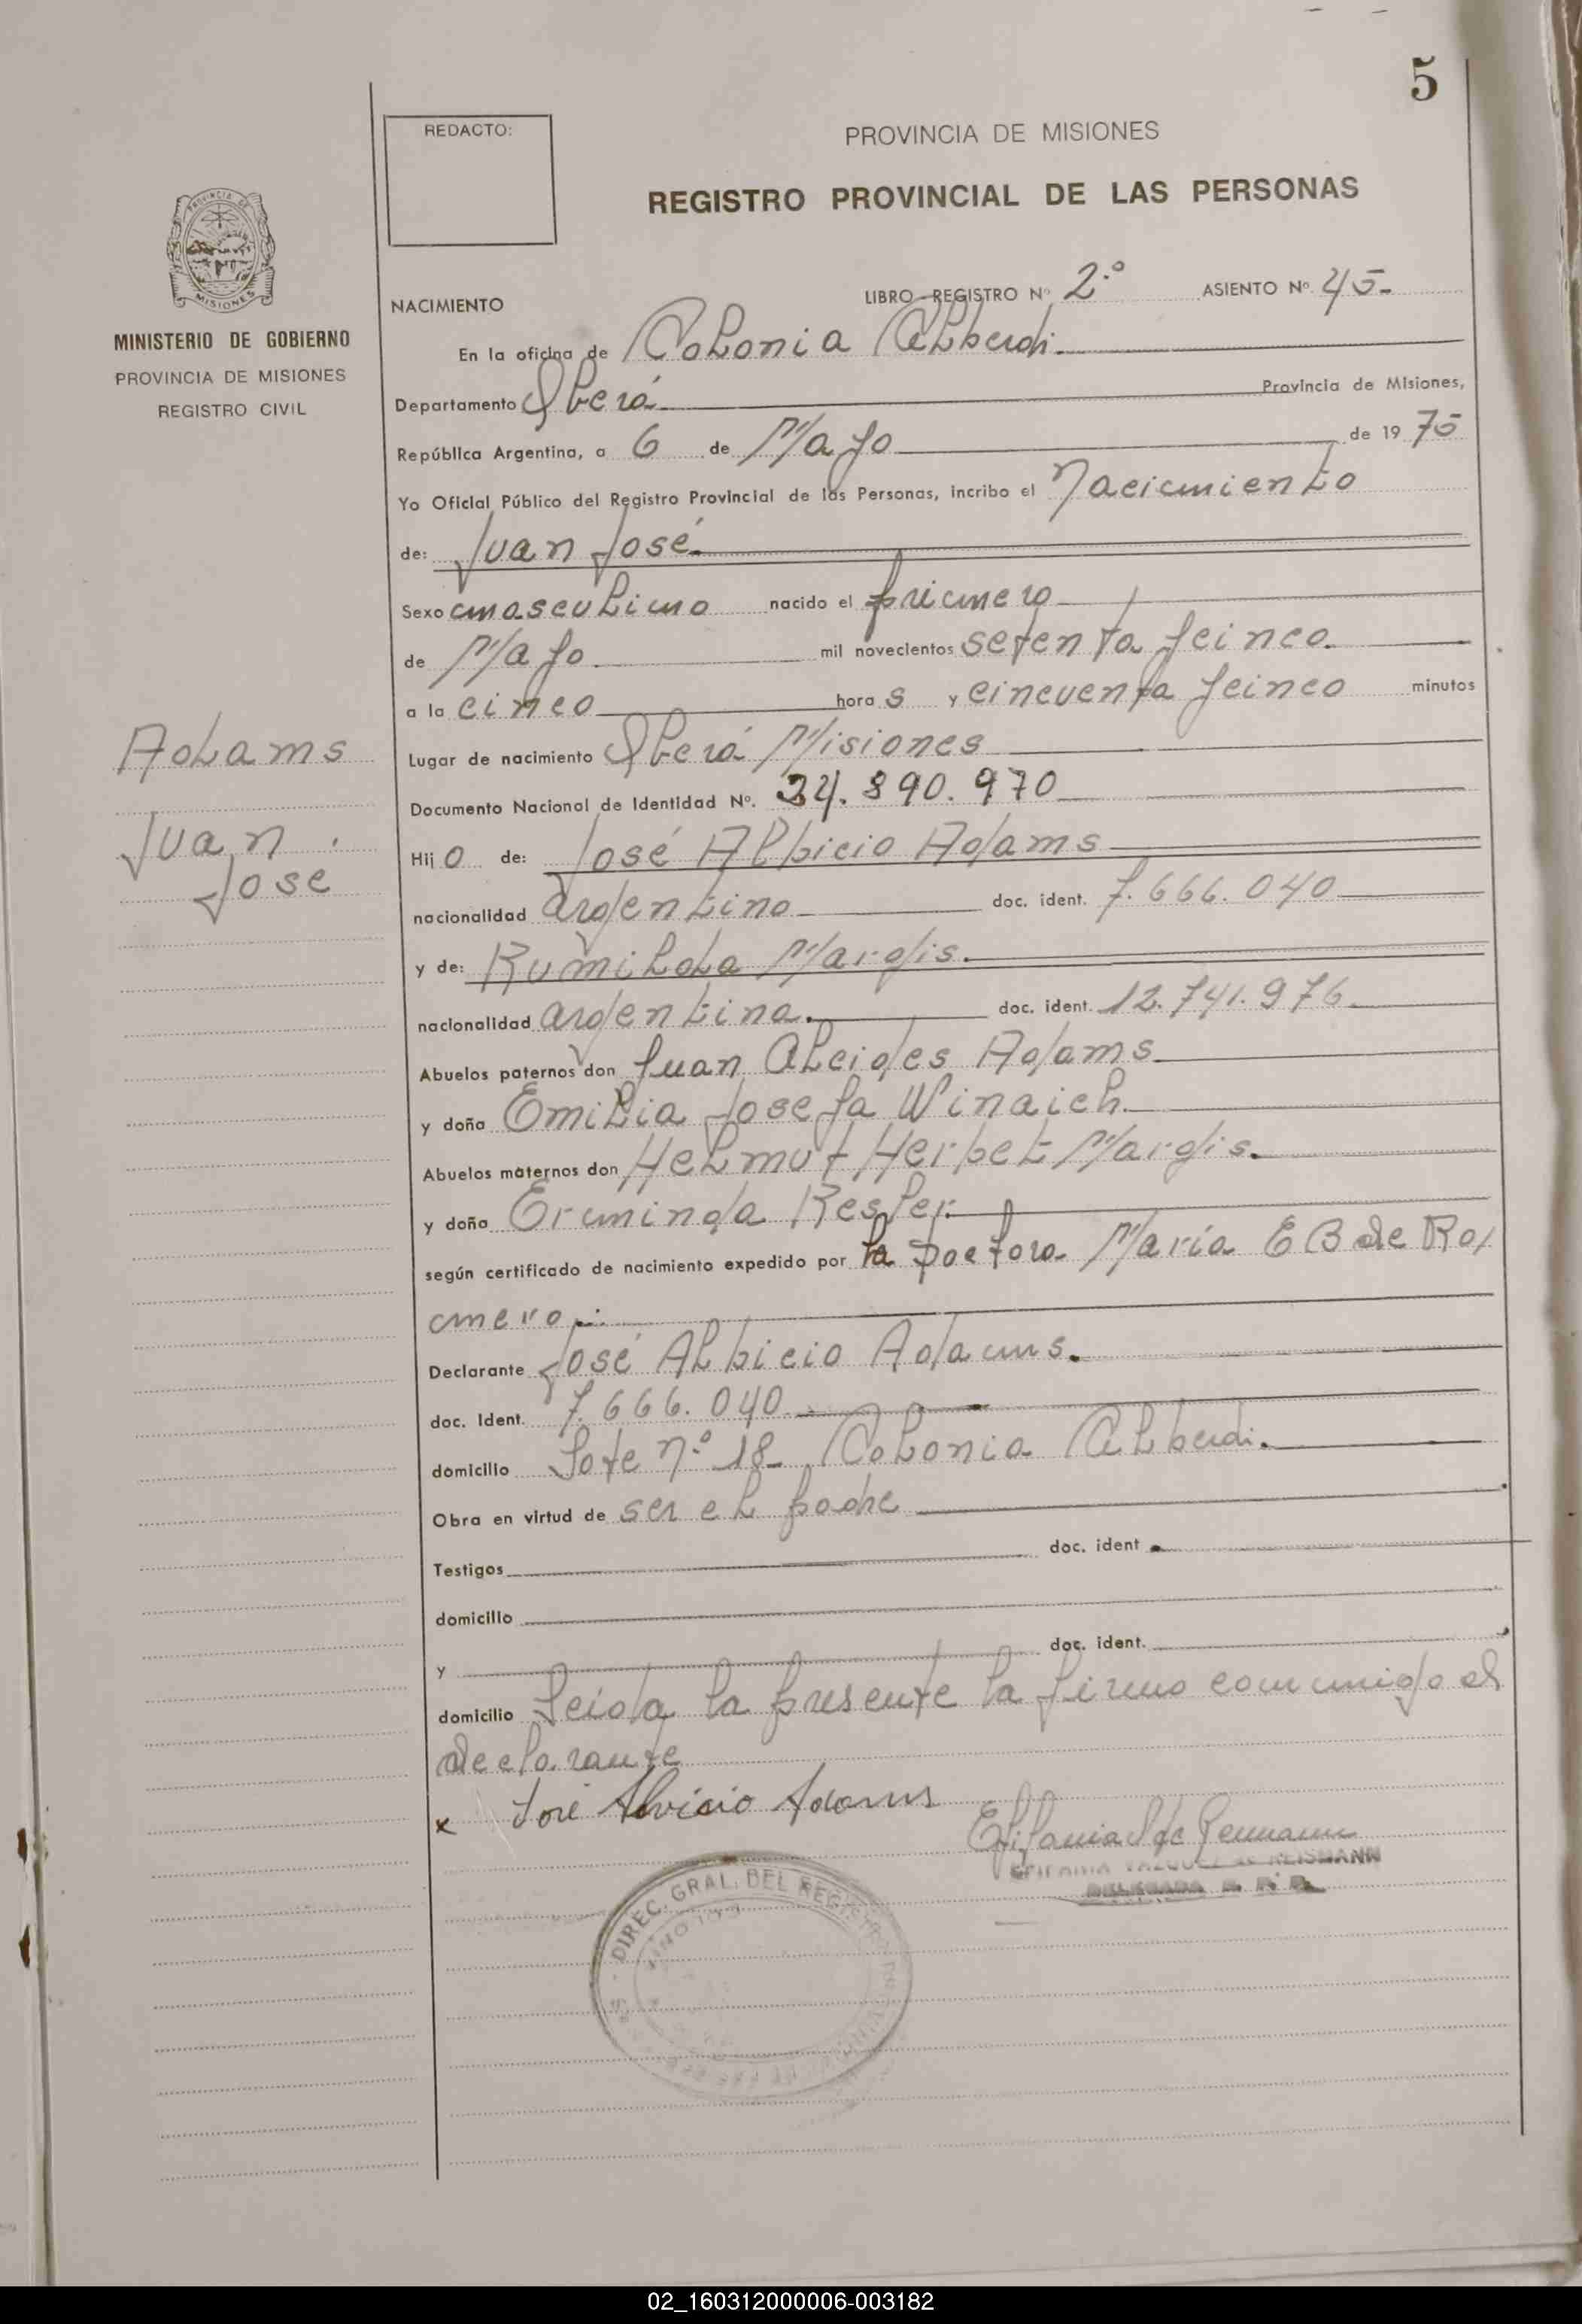 5
REDACTO:
PROVINCIA DE MISIONES
REGISTRO PROVINCIAL DE LAS PERSONAS
PROVINCIA DE
MISIONES
MINISTERIO DE GOBIERNO
PROVINCIA DE MISIONES
REGISTRO CIVIL
NACIMIENTO
LIBRO - REGISTRO Nº 2.º ASIENTO Nº 45-
En la oficina de Colonia Alberdi
Departamento Oberá Provincia de Misiones,
República Argentina, a 6 de Mayo de 1975
Yo Oficial Público del Registro Provincial de las Personas, incribo el Nacimiento
de: Juan José
Sexo masculino nacido el primero
de Mayo mil novecientos setenta y cinco.
a la cinco hora s y cincuenta y cinco minutos
Adams
Lugar de nacimiento Oberá Misiones
Documento Nacional de Identidad Nº. 24.890.970
Juan
Jose
Hij o de: José Albicio Adams
nacionalidad argentino doc. ident. 7.666.040
y de: Rumilda Margis.
nacionalidad argentina. doc. ident. 12.741.976
Abuelos paternos don Juan Alcides Adams
y doña Emilia Josefa Winaich
Abuelos maternos don Helmut Herbet Margis.
y doña Erminda Resler.
según certificado de nacimiento expedido por la Doctora María E B de Ro/
mero.
Declarante José Albicio Adams.
doc. Ident. 7.666.040
domicilio Lote nº 18 Colonia Alberdi.
Obra en virtud de ser el padre
Testigos doc. ident
domicilio
y doc. ident.
domicilio Leida la presente la firmo conmigo el
declarante
x José Alvicio Adams
EPIFANIA VAZQUEZ de REISMANN
DELEGADA R. P. P.
DIREC. GRAL. DEL REGISTRO
02_160312000006-003182